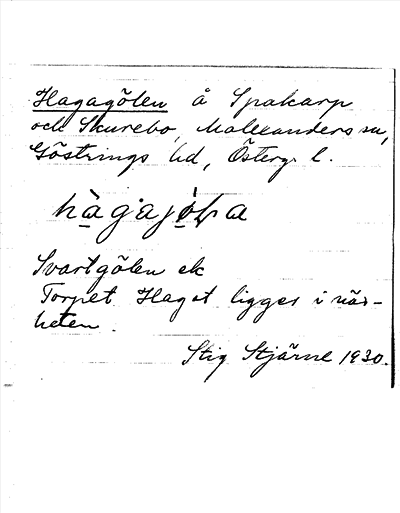 Hagagölen å Spakarp
och Skurebo, Malexanders sn,
Göstrings hd, Österg. l.
Svartgölen ek
Torpet Haget ligger i när-
heten.
Stig Stjärne 1930.